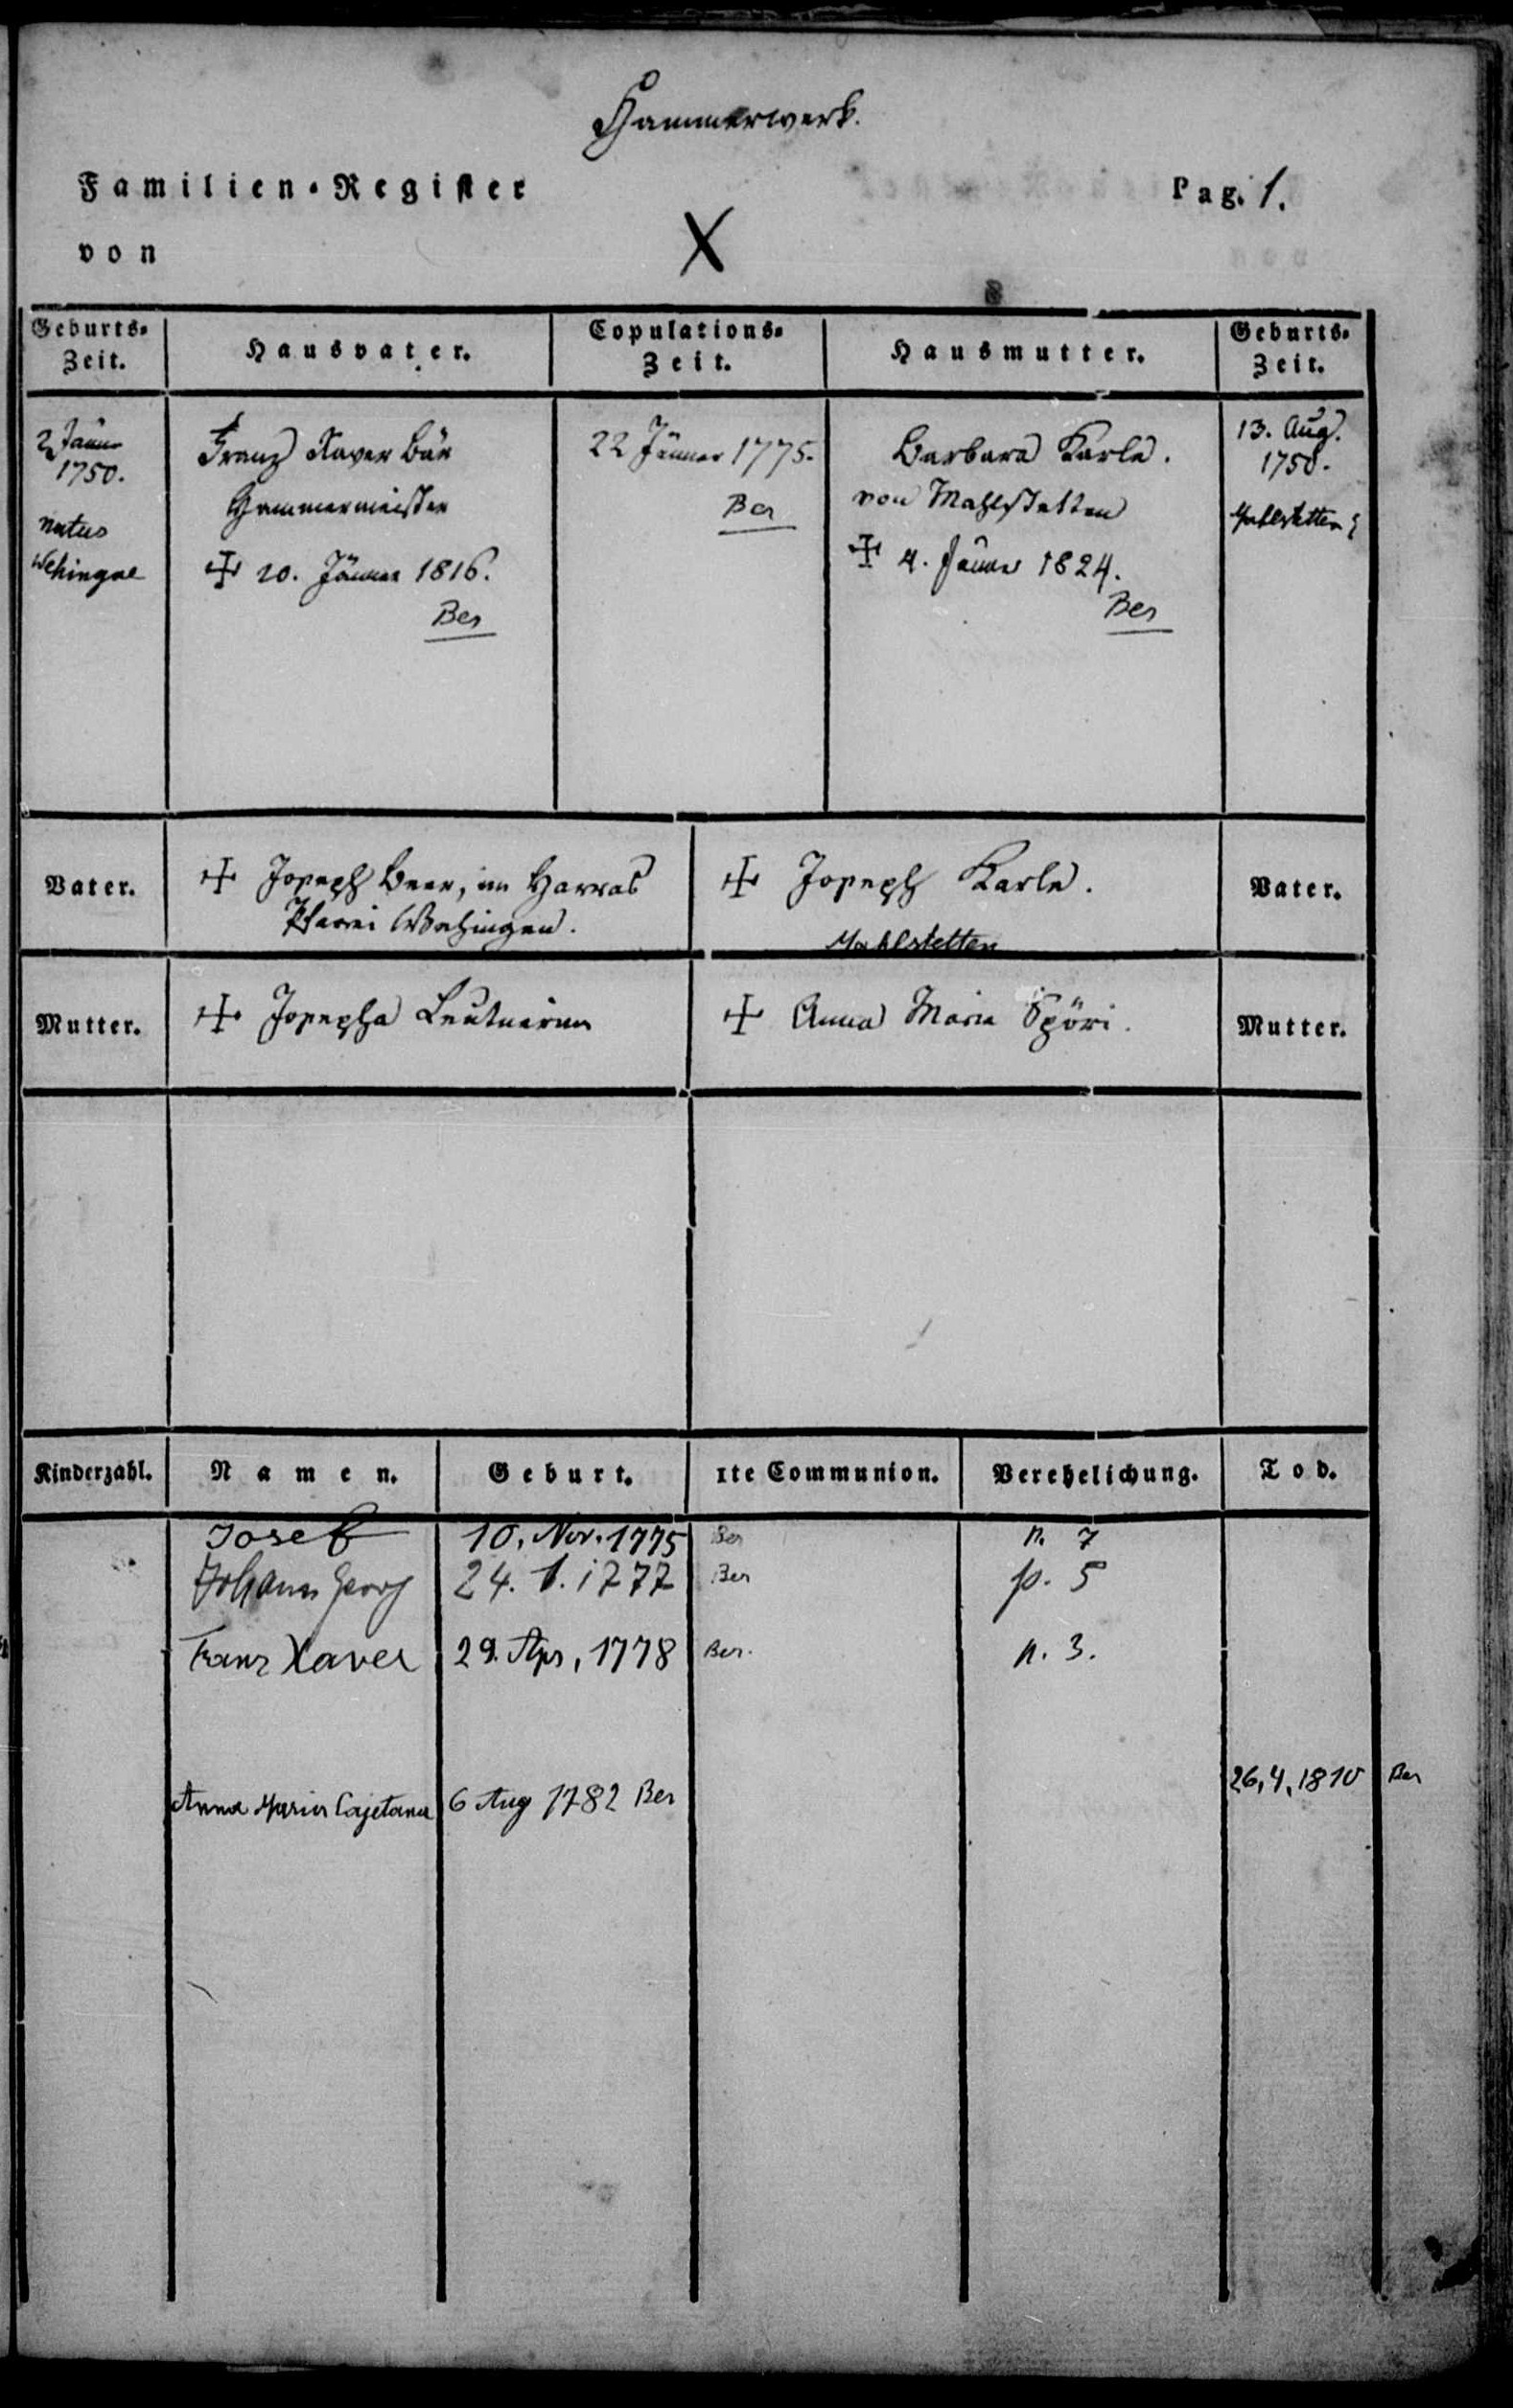 Hammerwerk.
Familien-Register
Pag. 1.
von
X
Geburts-Zeit.
Hausvater.
Copulations-Zeit.
Hausmutter.
Geburts-Zeit.
2 Jänner
1750.
natus
Wehingae
Franz Xaver Bär
Hammermeister
+ 20. Jänner 1816.
Ber
22 Jänner 1775.
Ber
Barbara Karle.
von Mahlstetten
+ 4. Jänner 1824.
Ber
13. Aug.
1750.
Mahlstetten
Vater.
+ Joseph Beer, im Harras
Pfarrei Wehingen.
+ Joseph Karle.
Mahlstetten
Vater.
Mutter.
+ Josepha Leutnerinn
+ Anna Maria Spöri.
Mutter.
Kinderzahl.
Namen.
Geburt.
1te Communion.
Verehelichung.
Tod.
Josef 10. Nov. 1775 Ber n. 7
Johann Georg 24. 1. 1777 Ber p. 5
Franz Xaver 29. Apr. 1778 Ber. n. 3.
Anna Maria Cajetana 6 Aug 1782 Ber 26.4.1810 Ber